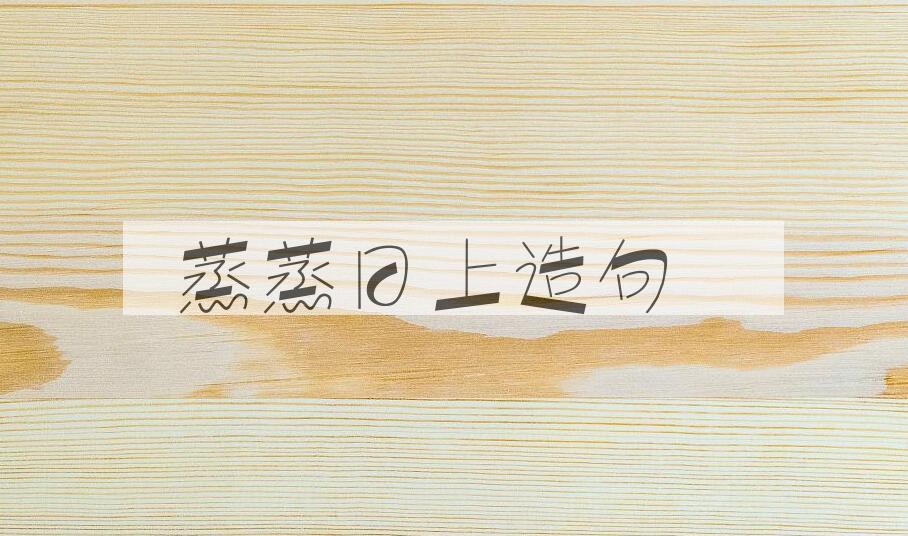 蒸蒸日上造句